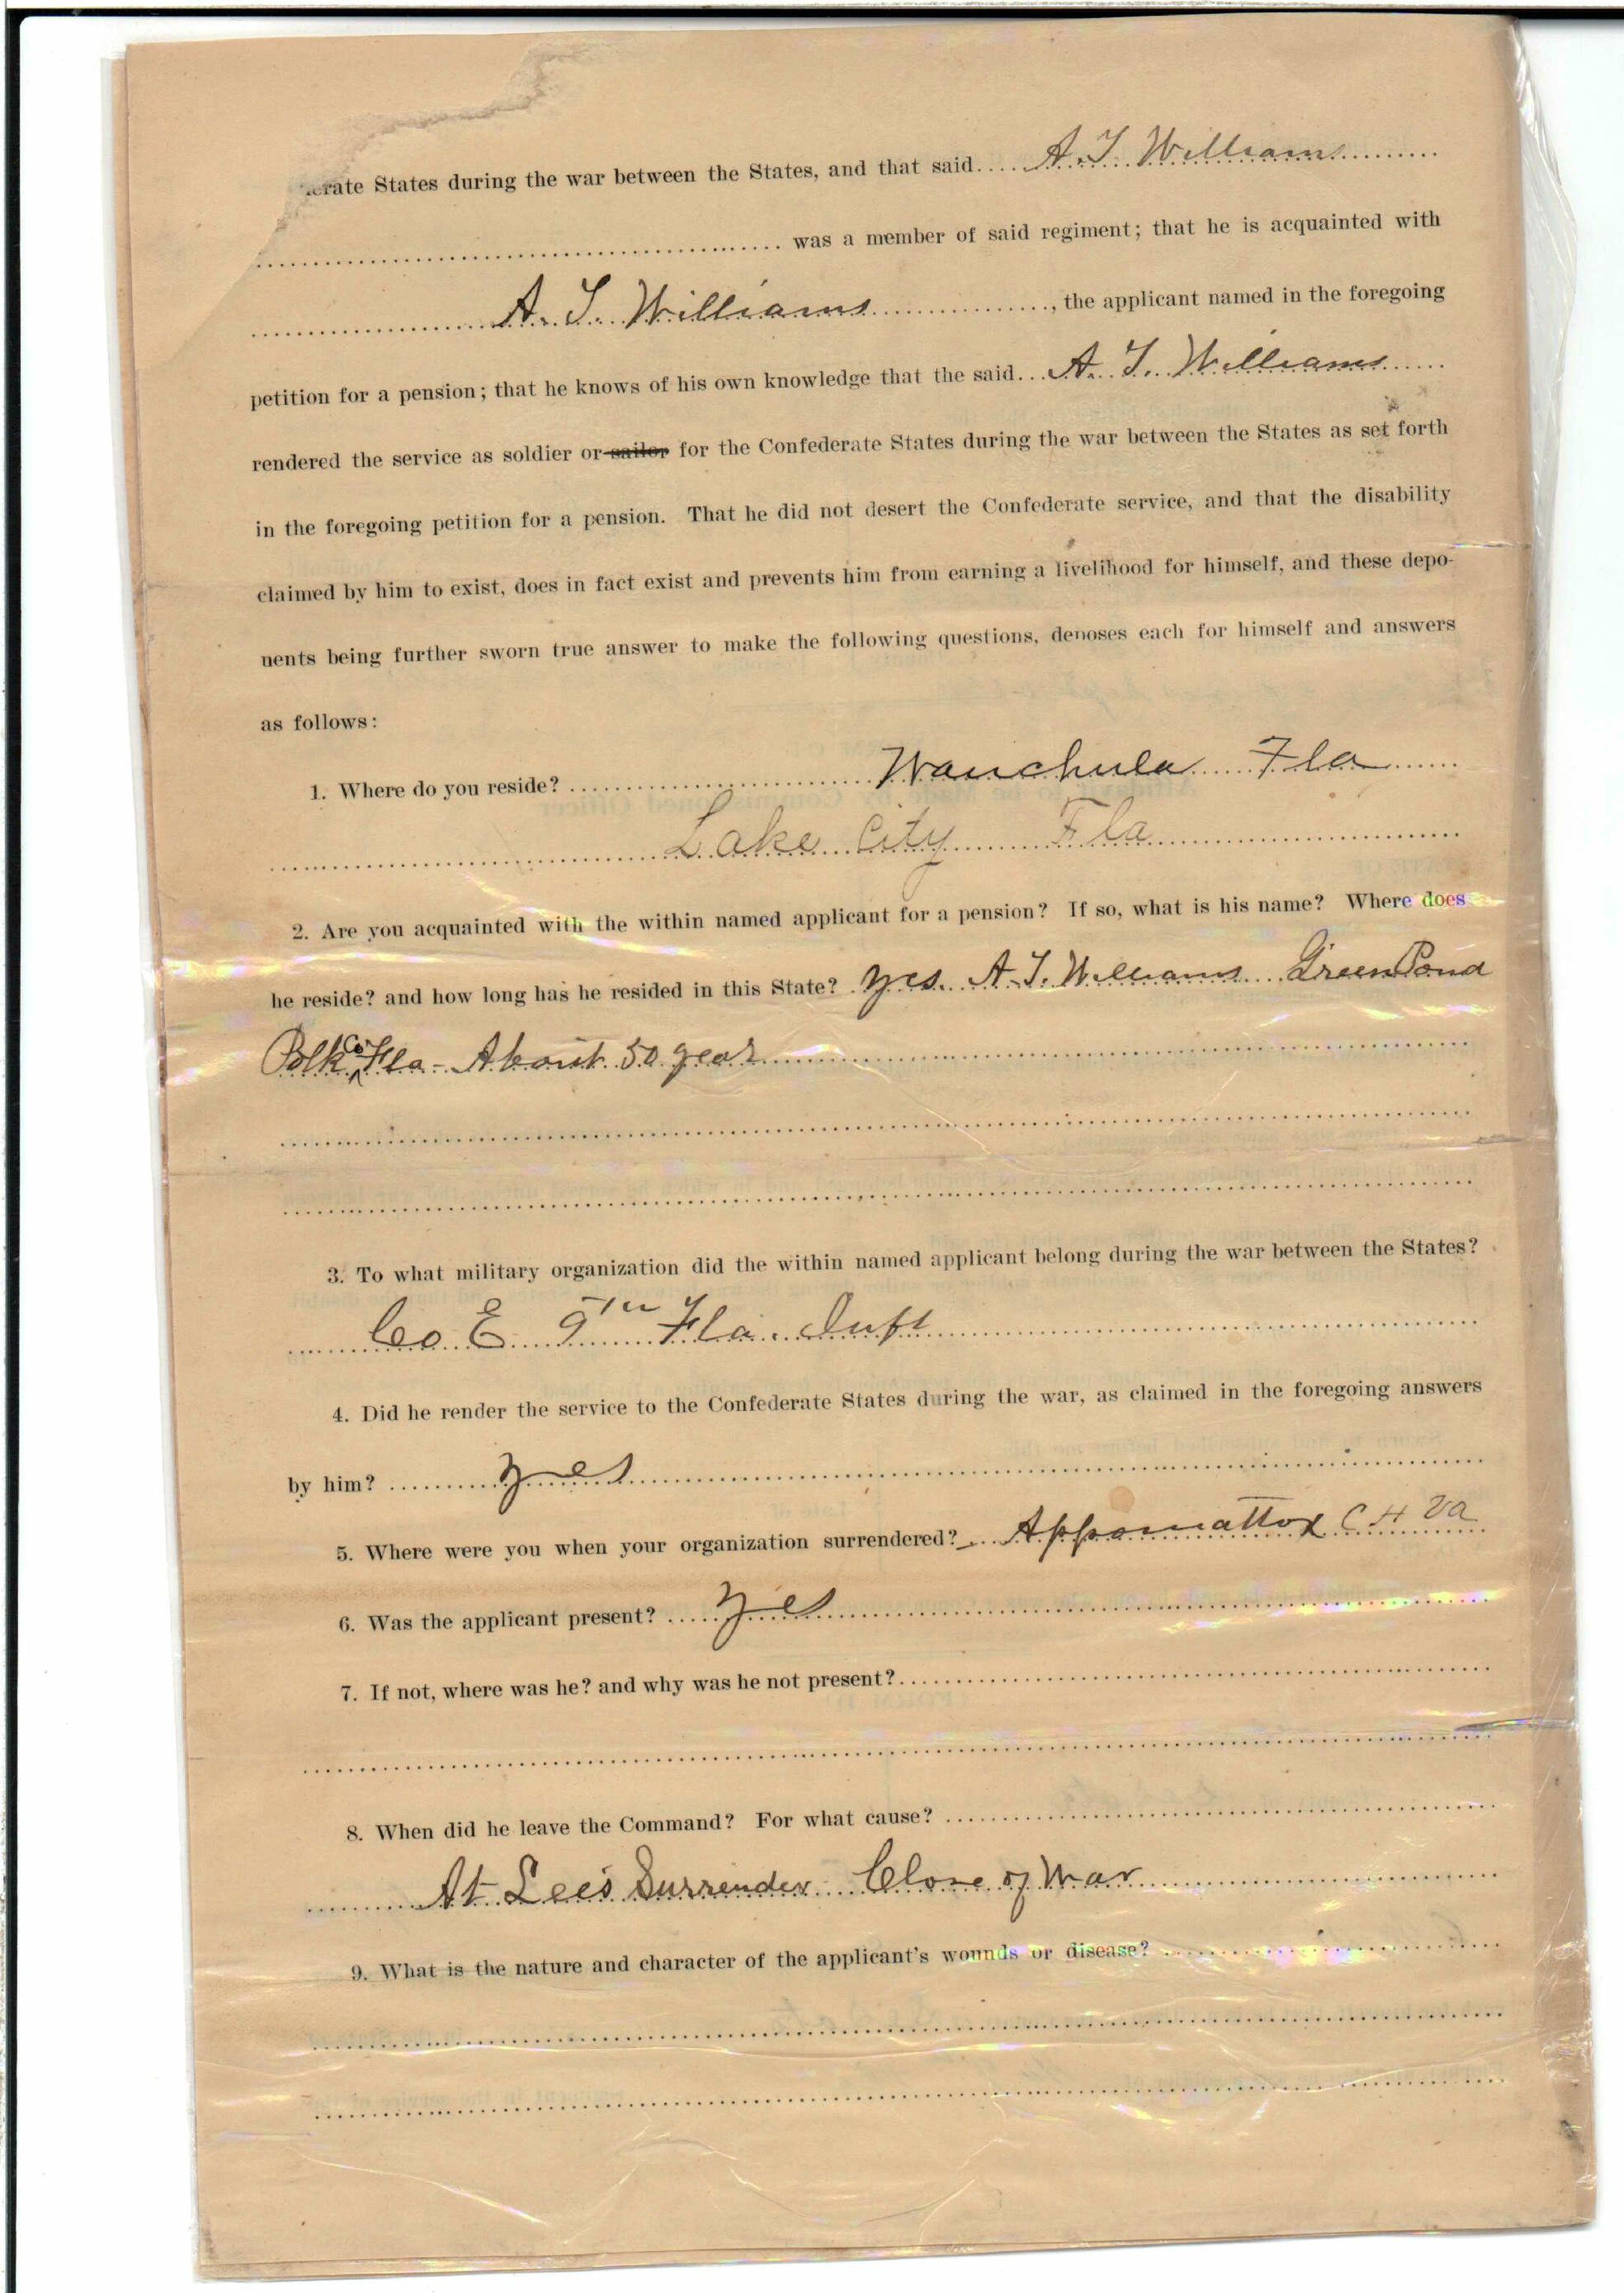 erate States during the war between the States, and that said.... A. T. Williams
was a member of said regiment; that he is acquainted with
A. T. Williams, the applicant named in the foregoing
petition for a pension; that he knows of his own knowledge that the said... A. T. Williams
rendered the service as soldier or sailor for the Confederate States during the war between the States as set forth
in the foregoing petition for a pension. That he did not desert the Confederate service, and that the disability
claimed by him to exist, does in fact exist and prevents him from earning a livelihood for himself, and these depo-
nents being further sworn true answer to make the following questions, deposes each for himself and answers
as follows:
1. Where do you reside? Wauchula Fla
Lake City Fla
2. Are you acquainted with the within named applicant for a pension? If so, what is his name? Where does
he reside? and how long has he resided in this State? Yes. A. T. Williams Green Pond
Polk Co Fla - About 50 year
3. To what military organization did the within named applicant belong during the war between the States?
Co E 9th Fla. Inft
4. Did he render the service to the Confederate States during the war, as claimed in the foregoing answers
by him? Yes
5. Where were you when your organization surrendered? Appomattox C H Va
6. Was the applicant present? Yes
7. If not, where was he? and why was he not present?
8. When did he leave the Command? For what cause?
At Lee's Surrender Close of War
9. What is the nature and character of the applicant's wounds or disease?